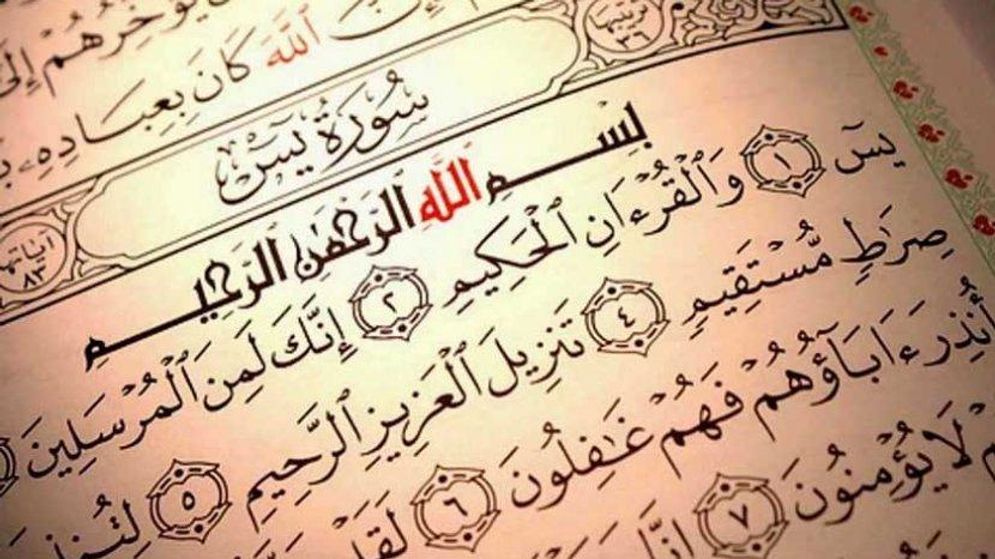 يُؤَخِّرُهُمْ إِلَىٰ
ٱللَّهَ كَانَ بِعِبَادِهِۦ
ترتيبها ٣٦
سُورَةُ يسٓ
آياتها ٨٣
بِسْمِ ٱللَّهِ ٱلرَّحْمَٰنِ ٱلرَّحِيمِ
يسٓ ١ وَٱلْقُرْءَانِ ٱلْحَكِيمِ ٢ إِنَّكَ لَمِنَ ٱلْمُرْسَلِينَ
صِرَٰطٍ مُّسْتَقِيمٍ ٤ تَنزِيلَ ٱلْعَزِيزِ ٱلرَّحِيمِ ٥
أُنذِرَ ءَابَآؤُهُمْ فَهُمْ غَٰفِلُونَ ٦
لَا يُؤْمِنُونَ ٧ إِنَّا